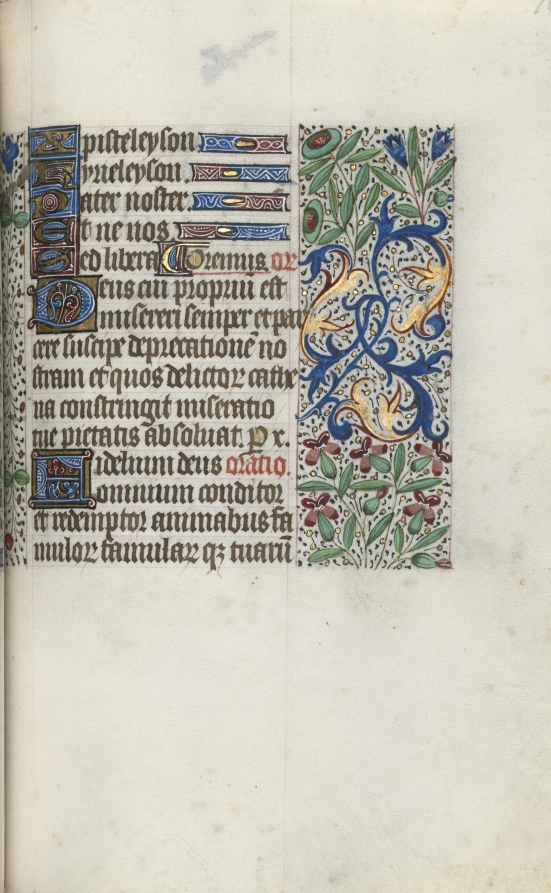 Xpisteleyson.
Kyrieleyson.
Pater noster
Et ne nos
Sed libera Oremus or
Deus cui propriū est
misereri semper et par
cere suscipe deprecationē no
stram et quos delictor cathe
na constringit miseratio
tue pietatis absoluat. P x.
Fidelium deus oratio.
omnium conditor
et redemptor animabus fa
mulor famular qz tuarū